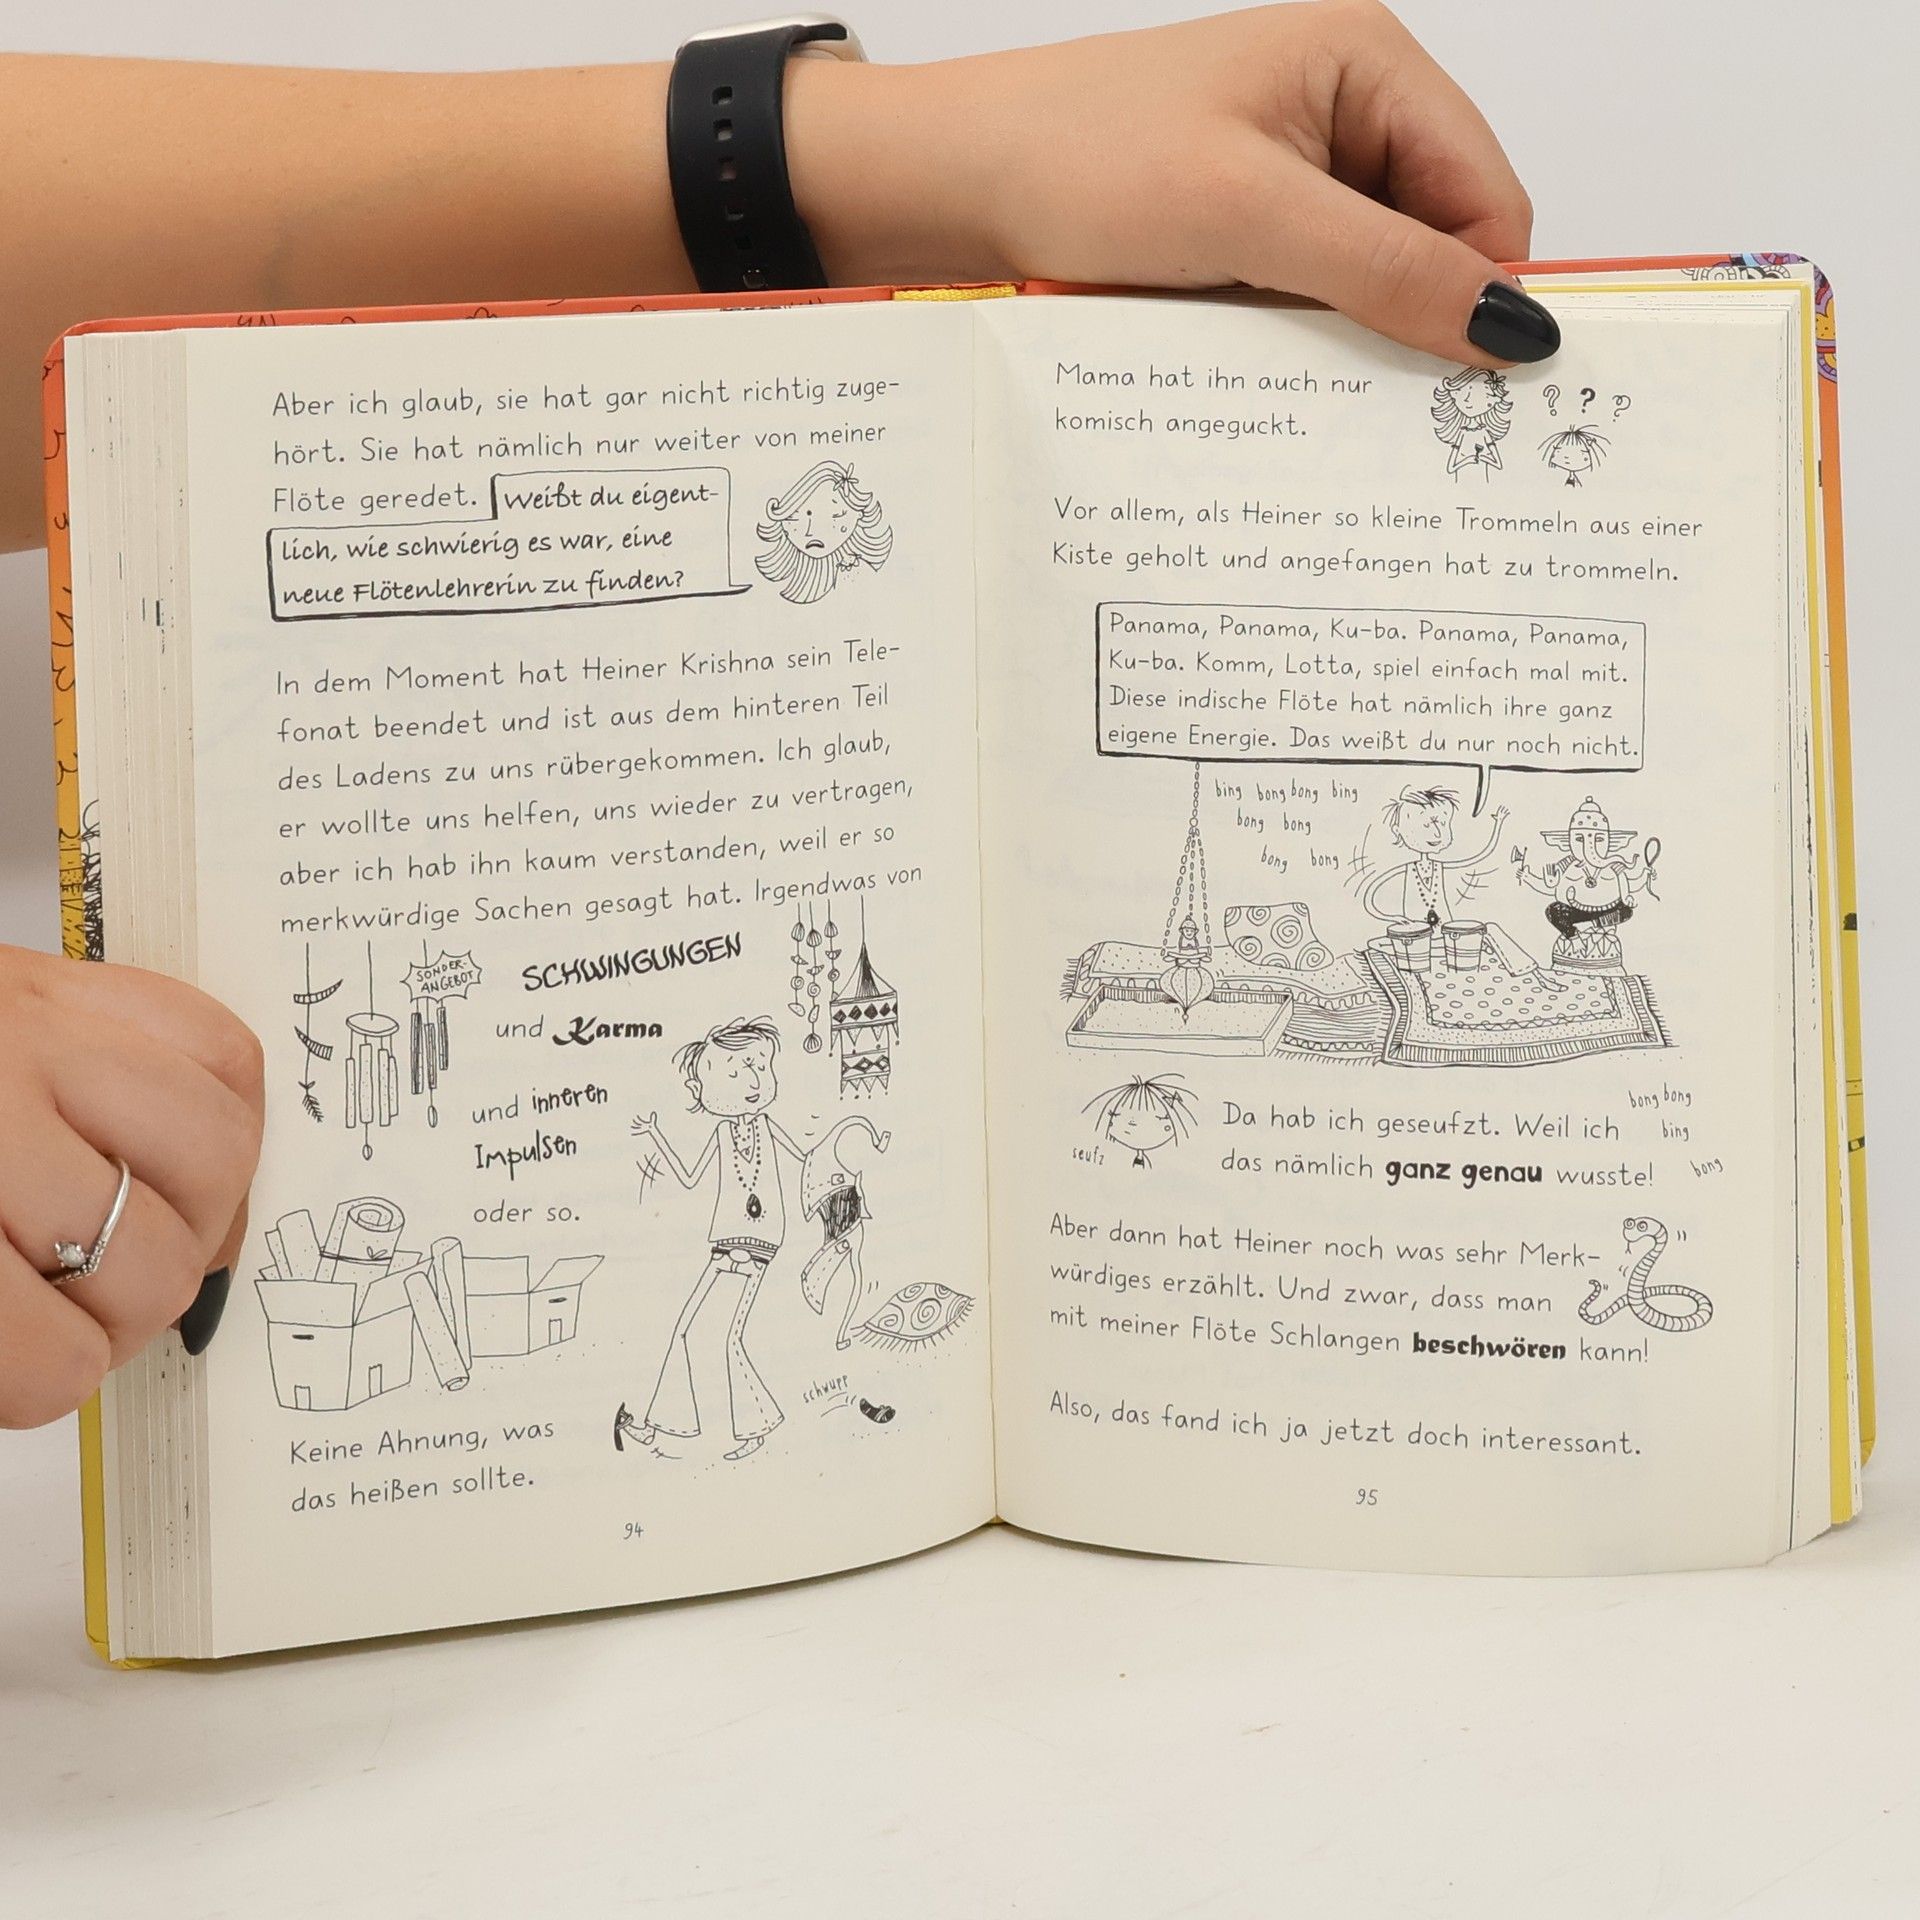 Aber ich glaub, sie hat gar nicht richtig zuge-
hört. Sie hat nämlich nur weiter von meiner
Flöte geredet. Weißt du eigent-
lich, wie schwierig es war, eine
neue Flötenlehrerin zu finden?
In dem Moment hat Heiner Krishna sein Tele-
fonat beendet und ist aus dem hinteren Teil
des Ladens zu uns rübergekommen. Ich glaub,
er wollte uns helfen, uns wieder zu vertragen,
aber ich hab ihn kaum verstanden, weil er so
merkwürdige Sachen gesagt hat. Irgendwas von
SONDER-
ANGEBOT
SCHWINGUNGEN
und Karma
und inneren
Impulsen
oder so.
schwupp
Keine Ahnung, was
das heißen sollte.
94
Mama hat ihn auch nur
komisch angeguckt.
? ? ?
Vor allem, als Heiner so kleine Trommeln aus einer
Kiste geholt und angefangen hat zu trommeln.
Panama, Panama, Ku-ba. Panama, Panama,
Ku-ba. Komm, Lotta, spiel einfach mal mit.
Diese indische Flöte hat nämlich ihre ganz
eigene Energie. Das weißt du nur noch nicht.
bing bong bong bing
bong bong
bong bong
seufz
Da hab ich geseufzt. Weil ich
das nämlich ganz genau wusste!
bong bong
bing
bong
Aber dann hat Heiner noch was sehr Merk-
würdiges erzählt. Und zwar, dass man
mit meiner Flöte Schlangen beschwören kann!
Also, das fand ich ja jetzt doch interessant.
95